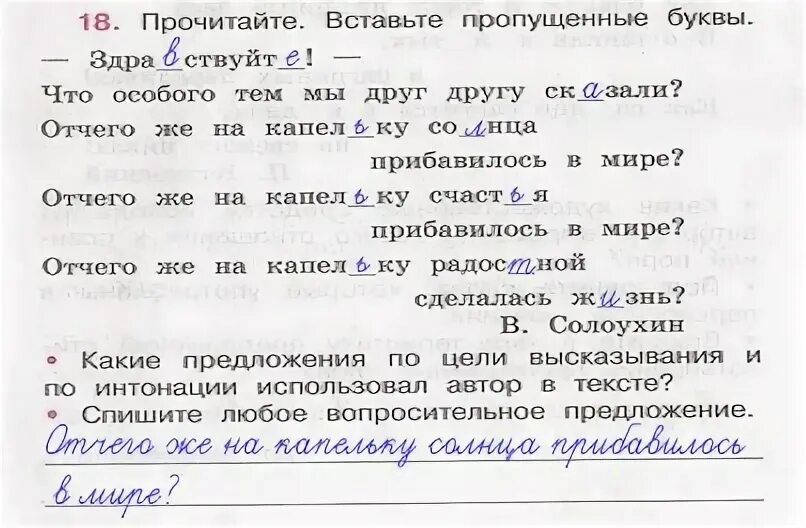 18. Прочитайте. Вставьте пропущенные буквы.
— Здравствуйте! —
Что особого тем мы друг другу сказали?
Отчего же на капельку солнца
прибавилось в мире?
Отчего же на капельку счастья
прибавилось в мире?
Отчего же на капельку радостной
сделалась жизнь?
В. Солоухин
• Какие предложения по цели высказывания и
по интонации использовал автор в тексте?
• Спишите любое вопросительное предложение.
Отчего же на капельку солнца прибавилось
в мире?